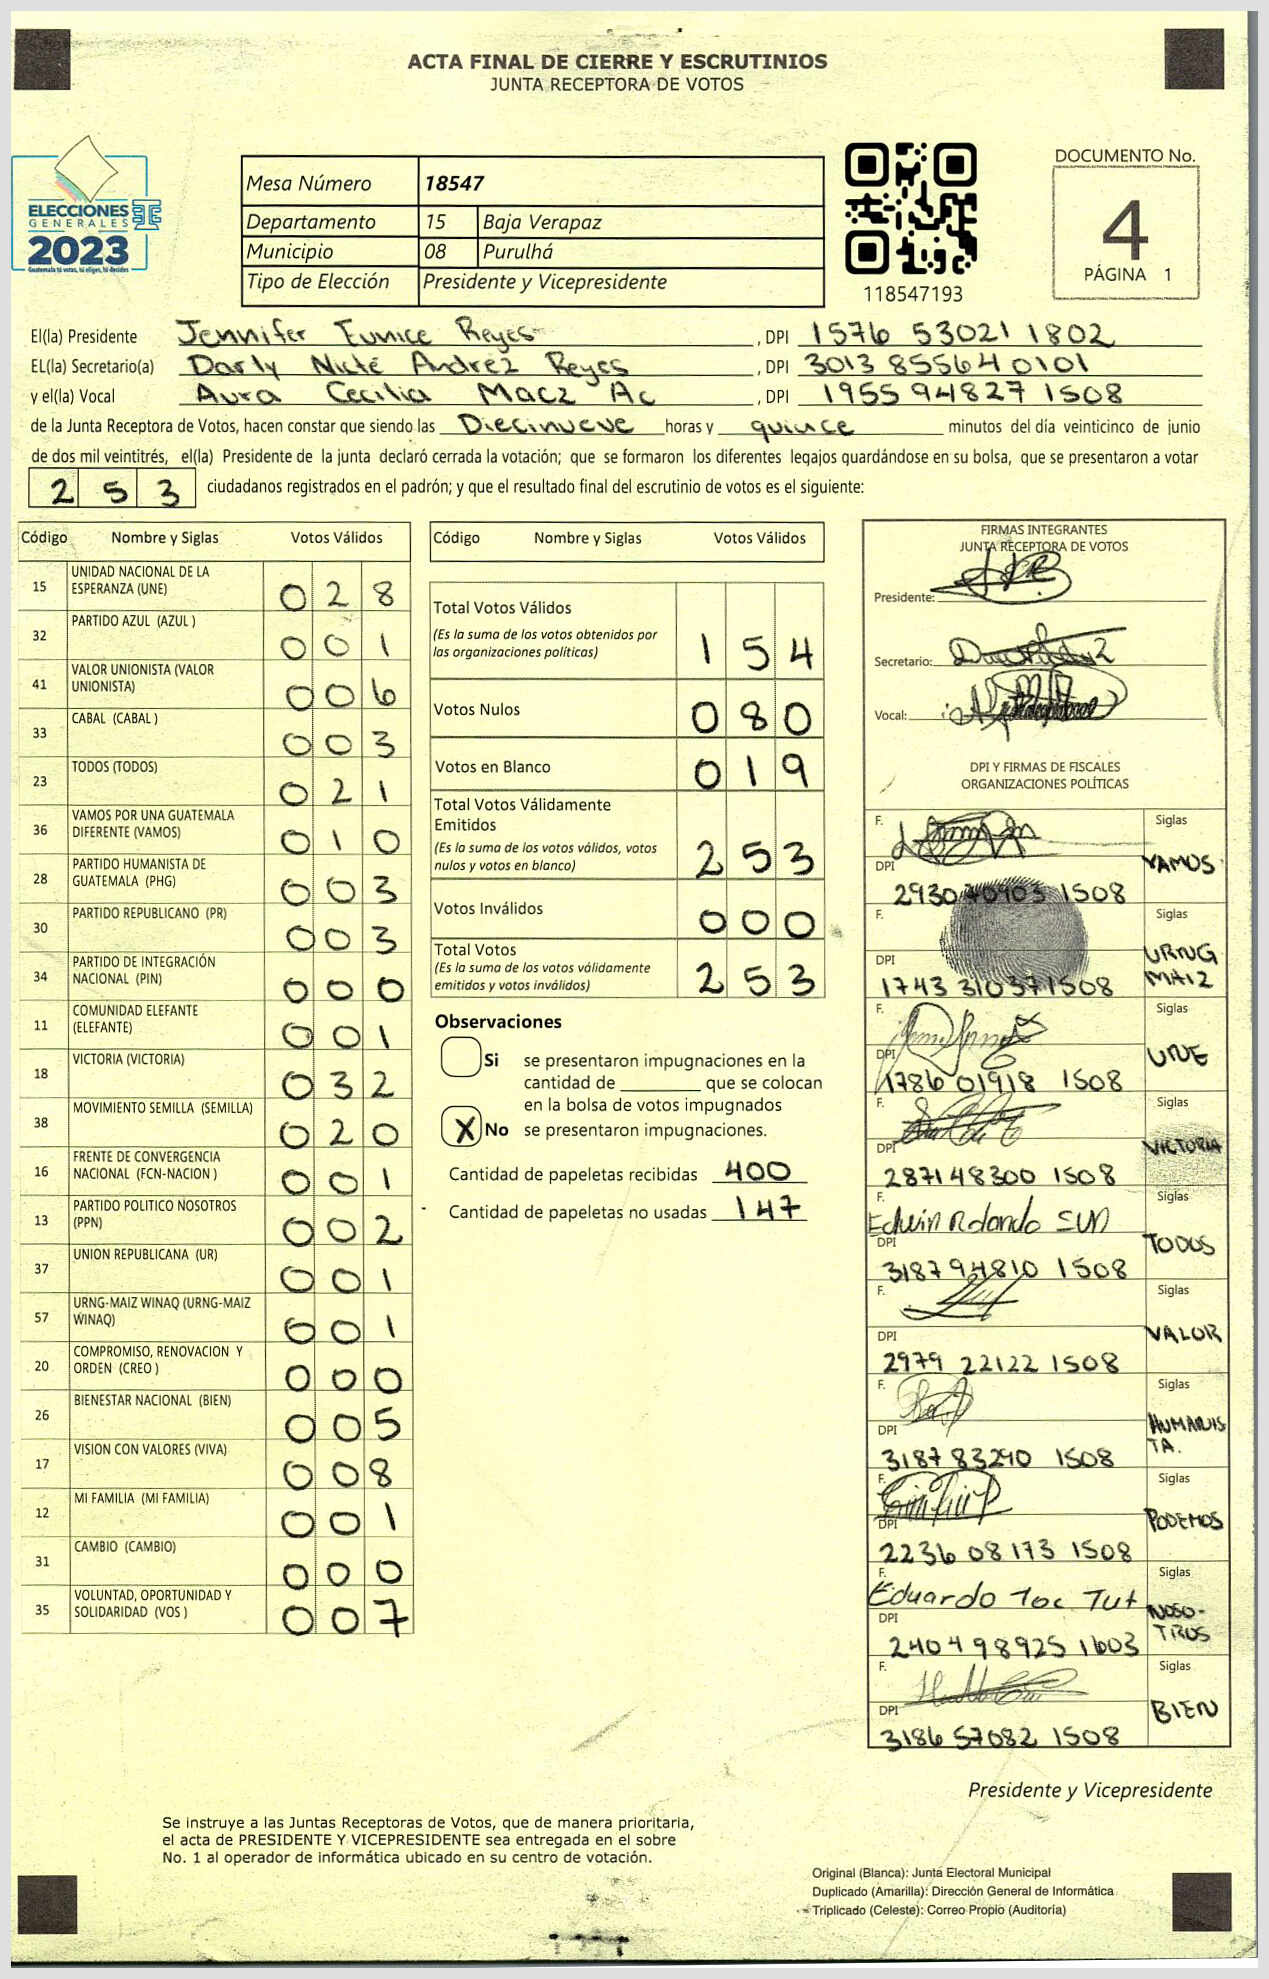 ACTA FINAL DE CIERRE Y ESCRUTINIOS
JUNTA RECEPTORA DE VOTOS
ELECCIONES
GENERALES
2023
Guatemala tú votas, tú eliges, tú decides
Mesa Número 18547
Departamento 15 Baja Verapaz
Municipio 08 Purulhá
Tipo de Elección Presidente y Vicepresidente
118547193
DOCUMENTO No.
4
PÁGINA 1
El(la) Presidente Jennifer Eunice Reyes, DPI 1576 53021 1802
EL(la) Secretario(a) Darly Nicté Andrez Reyes, DPI 3013 85564 0101
y el(la) Vocal Aura Cecilia Macz Ac, DPI 1955 94827 1508
de la Junta Receptora de Votos, hacen constar que siendo las Diecinueve horas y quince minutos del día veinticinco de junio
de dos mil veintitrés, el(la) Presidente de la junta declaró cerrada la votación; que se formaron los diferentes legajos guardándose en su bolsa, que se presentaron a votar
253 ciudadanos registrados en el padrón; y que el resultado final del escrutinio de votos es el siguiente:
Código Nombre y Siglas Votos Válidos
15 UNIDAD NACIONAL DE LA ESPERANZA (UNE) 028
32 PARTIDO AZUL (AZUL ) 001
41 VALOR UNIONISTA (VALOR UNIONISTA) 006
33 CABAL (CABAL ) 003
23 TODOS (TODOS) 021
36 VAMOS POR UNA GUATEMALA DIFERENTE (VAMOS) 010
28 PARTIDO HUMANISTA DE GUATEMALA (PHG) 003
30 PARTIDO REPUBLICANO (PR) 003
34 PARTIDO DE INTEGRACIÓN NACIONAL (PIN) 000
11 COMUNIDAD ELEFANTE (ELEFANTE) 001
18 VICTORIA (VICTORIA) 032
38 MOVIMIENTO SEMILLA (SEMILLA) 020
16 FRENTE DE CONVERGENCIA NACIONAL (FCN-NACION ) 001
13 PARTIDO POLITICO NOSOTROS (PPN) 002
37 UNION REPUBLICANA (UR) 001
57 URNG-MAIZ WINAQ (URNG-MAIZ WINAQ) 001
20 COMPROMISO, RENOVACION Y ORDEN (CREO ) 000
26 BIENESTAR NACIONAL (BIEN) 005
17 VISION CON VALORES (VIVA) 008
12 MI FAMILIA (MI FAMILIA) 001
31 CAMBIO (CAMBIO) 000
35 VOLUNTAD, OPORTUNIDAD Y SOLIDARIDAD (VOS ) 007
Código Nombre y Siglas Votos Válidos
Total Votos Válidos 154
(Es la suma de los votos obtenidos por
las organizaciones políticas)
Votos Nulos 080
Votos en Blanco 019
Total Votos Válidamente
Emitidos 253
(Es la suma de los votos válidos, votos
nulos y votos en blanco)
Votos Inválidos 000
Total Votos 253
(Es la suma de los votos válidamente
emitidos y votos inválidos)
Observaciones
Si se presentaron impugnaciones en la
cantidad de ________ que se colocan
en la bolsa de votos impugnados
X No se presentaron impugnaciones.
Cantidad de papeletas recibidas 400
Cantidad de papeletas no usadas 147
FIRMAS INTEGRANTES
JUNTA RECEPTORA DE VOTOS
Presidente:
Secretario:
Vocal:
DPI Y FIRMAS DE FISCALES
ORGANIZACIONES POLÍTICAS
F. Siglas VAMOS
DPI 2930 70903 1508
F. Siglas URNG MAIZ
DPI 1743 31037 1508
F. Siglas UNE
DPI 1786 01918 1508
F. Siglas VICTORIA
DPI 2871 48300 1508
F. Edwin Rolando SUN Siglas TODOS
DPI 3187 94810 1508
F. Siglas VALOR
DPI 2979 22122 1508
F. Siglas HUMANISTA.
DPI 3187 83290 1508
F. Siglas PODEMOS
DPI 2236 08173 1508
F. Eduardo Toc Tut Siglas NOSO-TROS
DPI 2404 98925 1603
F. Siglas BIEN
DPI 3186 57082 1508
Presidente y Vicepresidente
Se instruye a las Juntas Receptoras de Votos, que de manera prioritaria,
el acta de PRESIDENTE Y VICEPRESIDENTE sea entregada en el sobre
No. 1 al operador de informática ubicado en su centro de votación.
Original (Blanca): Junta Electoral Municipal
Duplicado (Amarilla): Dirección General de Informática
Triplicado (Celeste): Correo Propio (Auditoría)